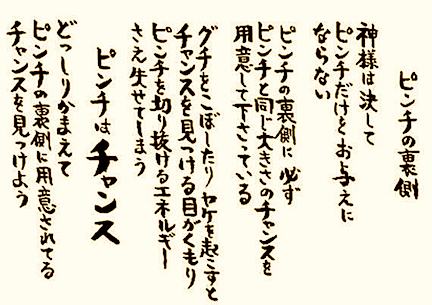 ピンチの裏側
神様は決して
ピンチだけをお与えに
ならない
ピンチの裏側に必ず
ピンチと同じ大きさのチャンスを
用意して下さっている
グチをこぼしたりヤケを起こすと
チャンスを見つける目がくもり
ピンチを切り抜けるエネルギー
さえ失せてしまう
ピンチはチャンス
どっしりかまえて
ピンチの裏側に用意されてる
チャンスを見つけよう